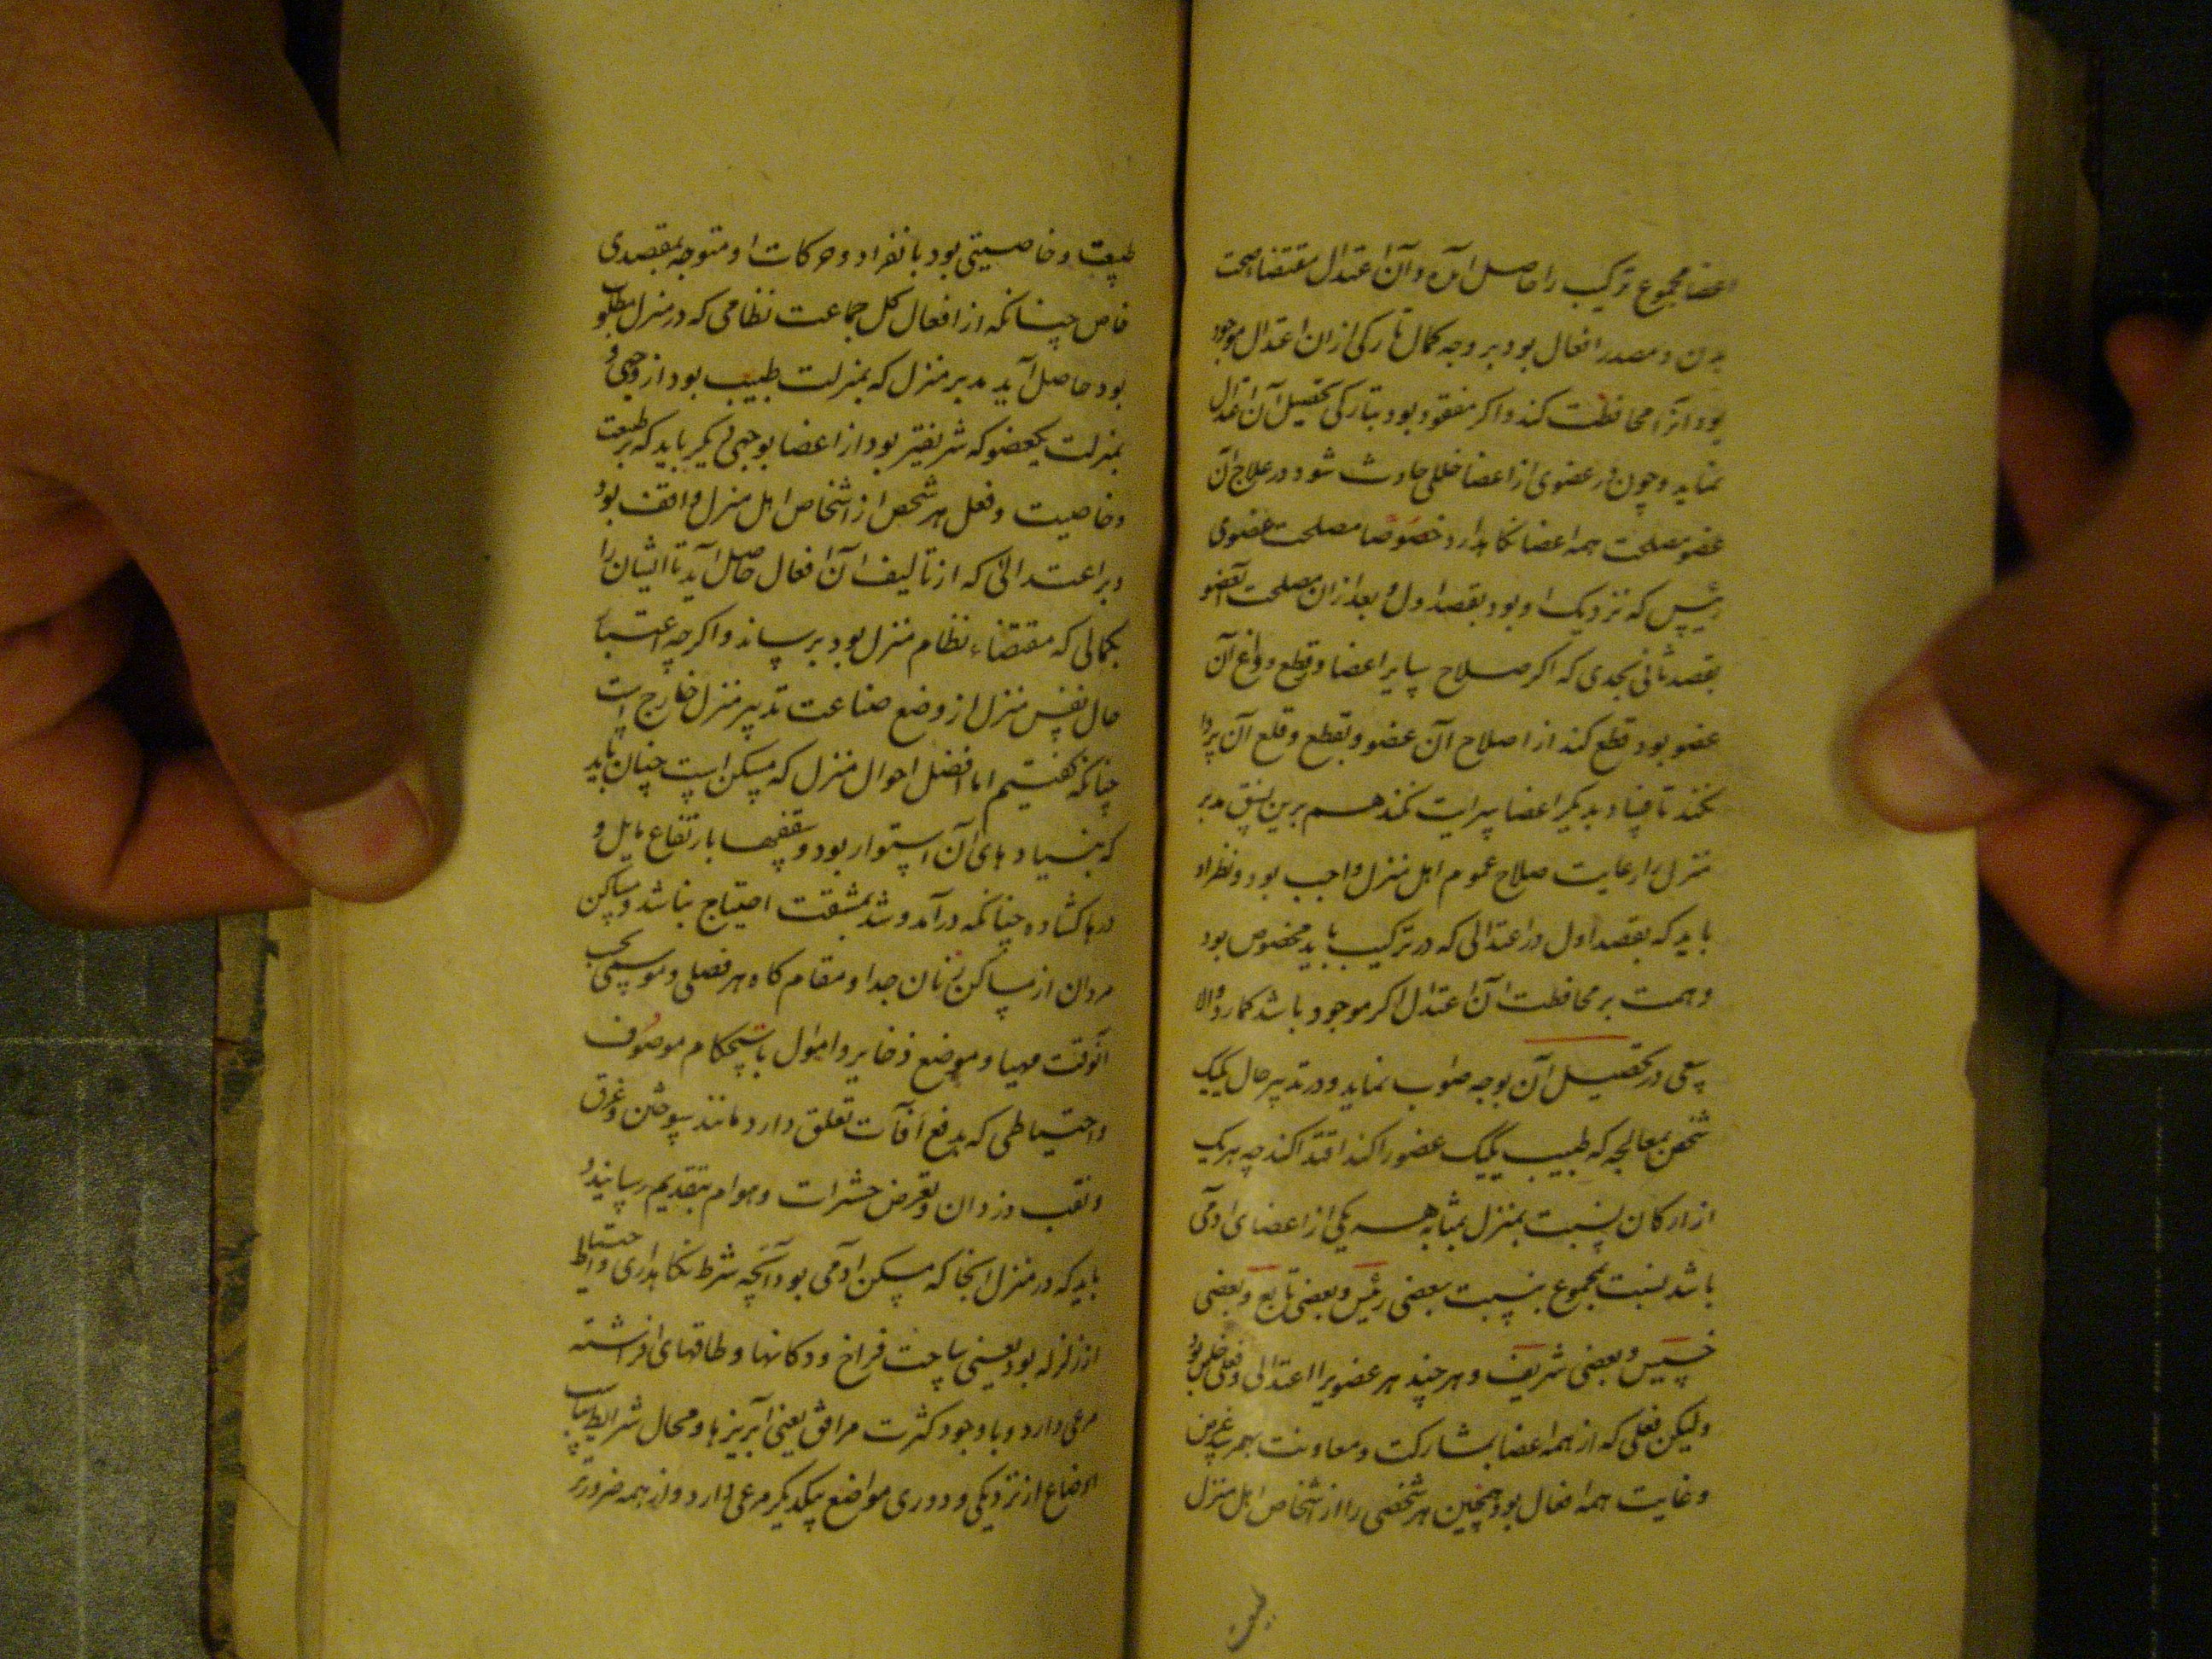 اعضا مجموع ترکیب را حاصل آمده و آن اعتدال مقتضاء صحت
بدن و مصدر افعال بود بر وجه کمال تا رکی ازان اعتدال موجود
بود آنرا محافظت کند و اکر مفقود بود بتارکی تحصیل آن اعتدال
نماید و چون در عضوی از اعضا خللی حادث شود در علاج آن
عضو مصلحت همه اعضا نکاهدارد خصوصا مصلحت عضوی
رئیس که نزدیک او بود بقصد اول و بعد ازان مصلحت آنعضو
بقصد ثانی بحدی که اکر صلاح سایر اعضا و قطع و داغ آن
عضو بود قطع کند از اصلاح آن عضو و بقطع و قلع آن پروا
نکند تا فساد بدیکر اعضا سرایت نکند هم برین نسق مدبر
منزل را رعایت صلاح عموم اهل منزل واجب بود و نظر او
باید که بقصد اول در اعتدالی که در ترکیب باید مخصوص بود
و همت بر محافظت آن اعتدال اکر موجود باشد کمارد والا
سعی در تحصیل آن بوجه صواب نماید و در تدبیر حال یکیک
شخص بمعالجه که طبیب یکیک عضو را کند اقتدا کند چه هریک
از ارکان نسبت بمنزل بمثابه هر یکی از اعضای آدمی
باشد نسبت بمجموع بنسبت بعضی رئیس و بعضی تابع و بعضی
خسیس و بعضی شریف و هر چند هر عضویرا اعتدالی و فعلی خاص بود
ولیکن فعلی که از همه اعضا بمشارکت و معاونت بهم رسد غرض
و غایت همه افعال بود همچنین هر شخصی را از اشخاص اهل منزل
طبیعت و خاصیتی بود بانفراد و حرکات او متوجه بمقصدی
خاص چنانکه از افعال کل جماعت نظامی که در منزل مطلوب
بود حاصل آید مدبر منزل که بمنزلت طبیب بود از وجهی و
بمنزلت یکعضو که شریفتر بود از اعضا بوجهی دیکر باید که بر طبیعت
و خاصیت و فعل هر شخص از اشخاص اهل منزل واقف بود
و بر اعتدالی که از تالیف آن افعال حاصل آید تا ایشان را
بکمالی که مقتضاء نظام منزل بود برساند و اکر چه اعتبار
حال نفس منزل از وضع صناعت تدبیر منزل خارج است
چنانکه کفتیم اما افضل احوال منزل که مسکن است چنان باید
که بنیادهای آن استوار بود و سقفها بارتفاع مایل و
درها کشاده چنانکه در آمد و شد بمشقت احتیاج نباشد و مساکن
مردان از مساکن زنان جدا و مقام کاه هر فصلی و موسمی بحسب
آنوقت مهیا و موضع ذخایر و اموال باستحکام موصوف
و احتیاطی که بدفع آفات تعلق دارد مانند سوختن و غرق
و نقب دزدان و تعرض حشرات و هوام بتقدیم رسانید و
باید که در منزل آنجا که مسکن آدمی بود آنچه شرط نکاهداری و احتیاط
از زلزله بود یعنی ساحت فراخ و دکانها و طاقهای افراشته
مرعی دارد و با وجود کثرت مرافق یعنی آبریزها و محال شرایط تناسب
اوضاع از نزدیکی و دوری مواضع بیکدیکر مرعی دارد و از همه ضروری